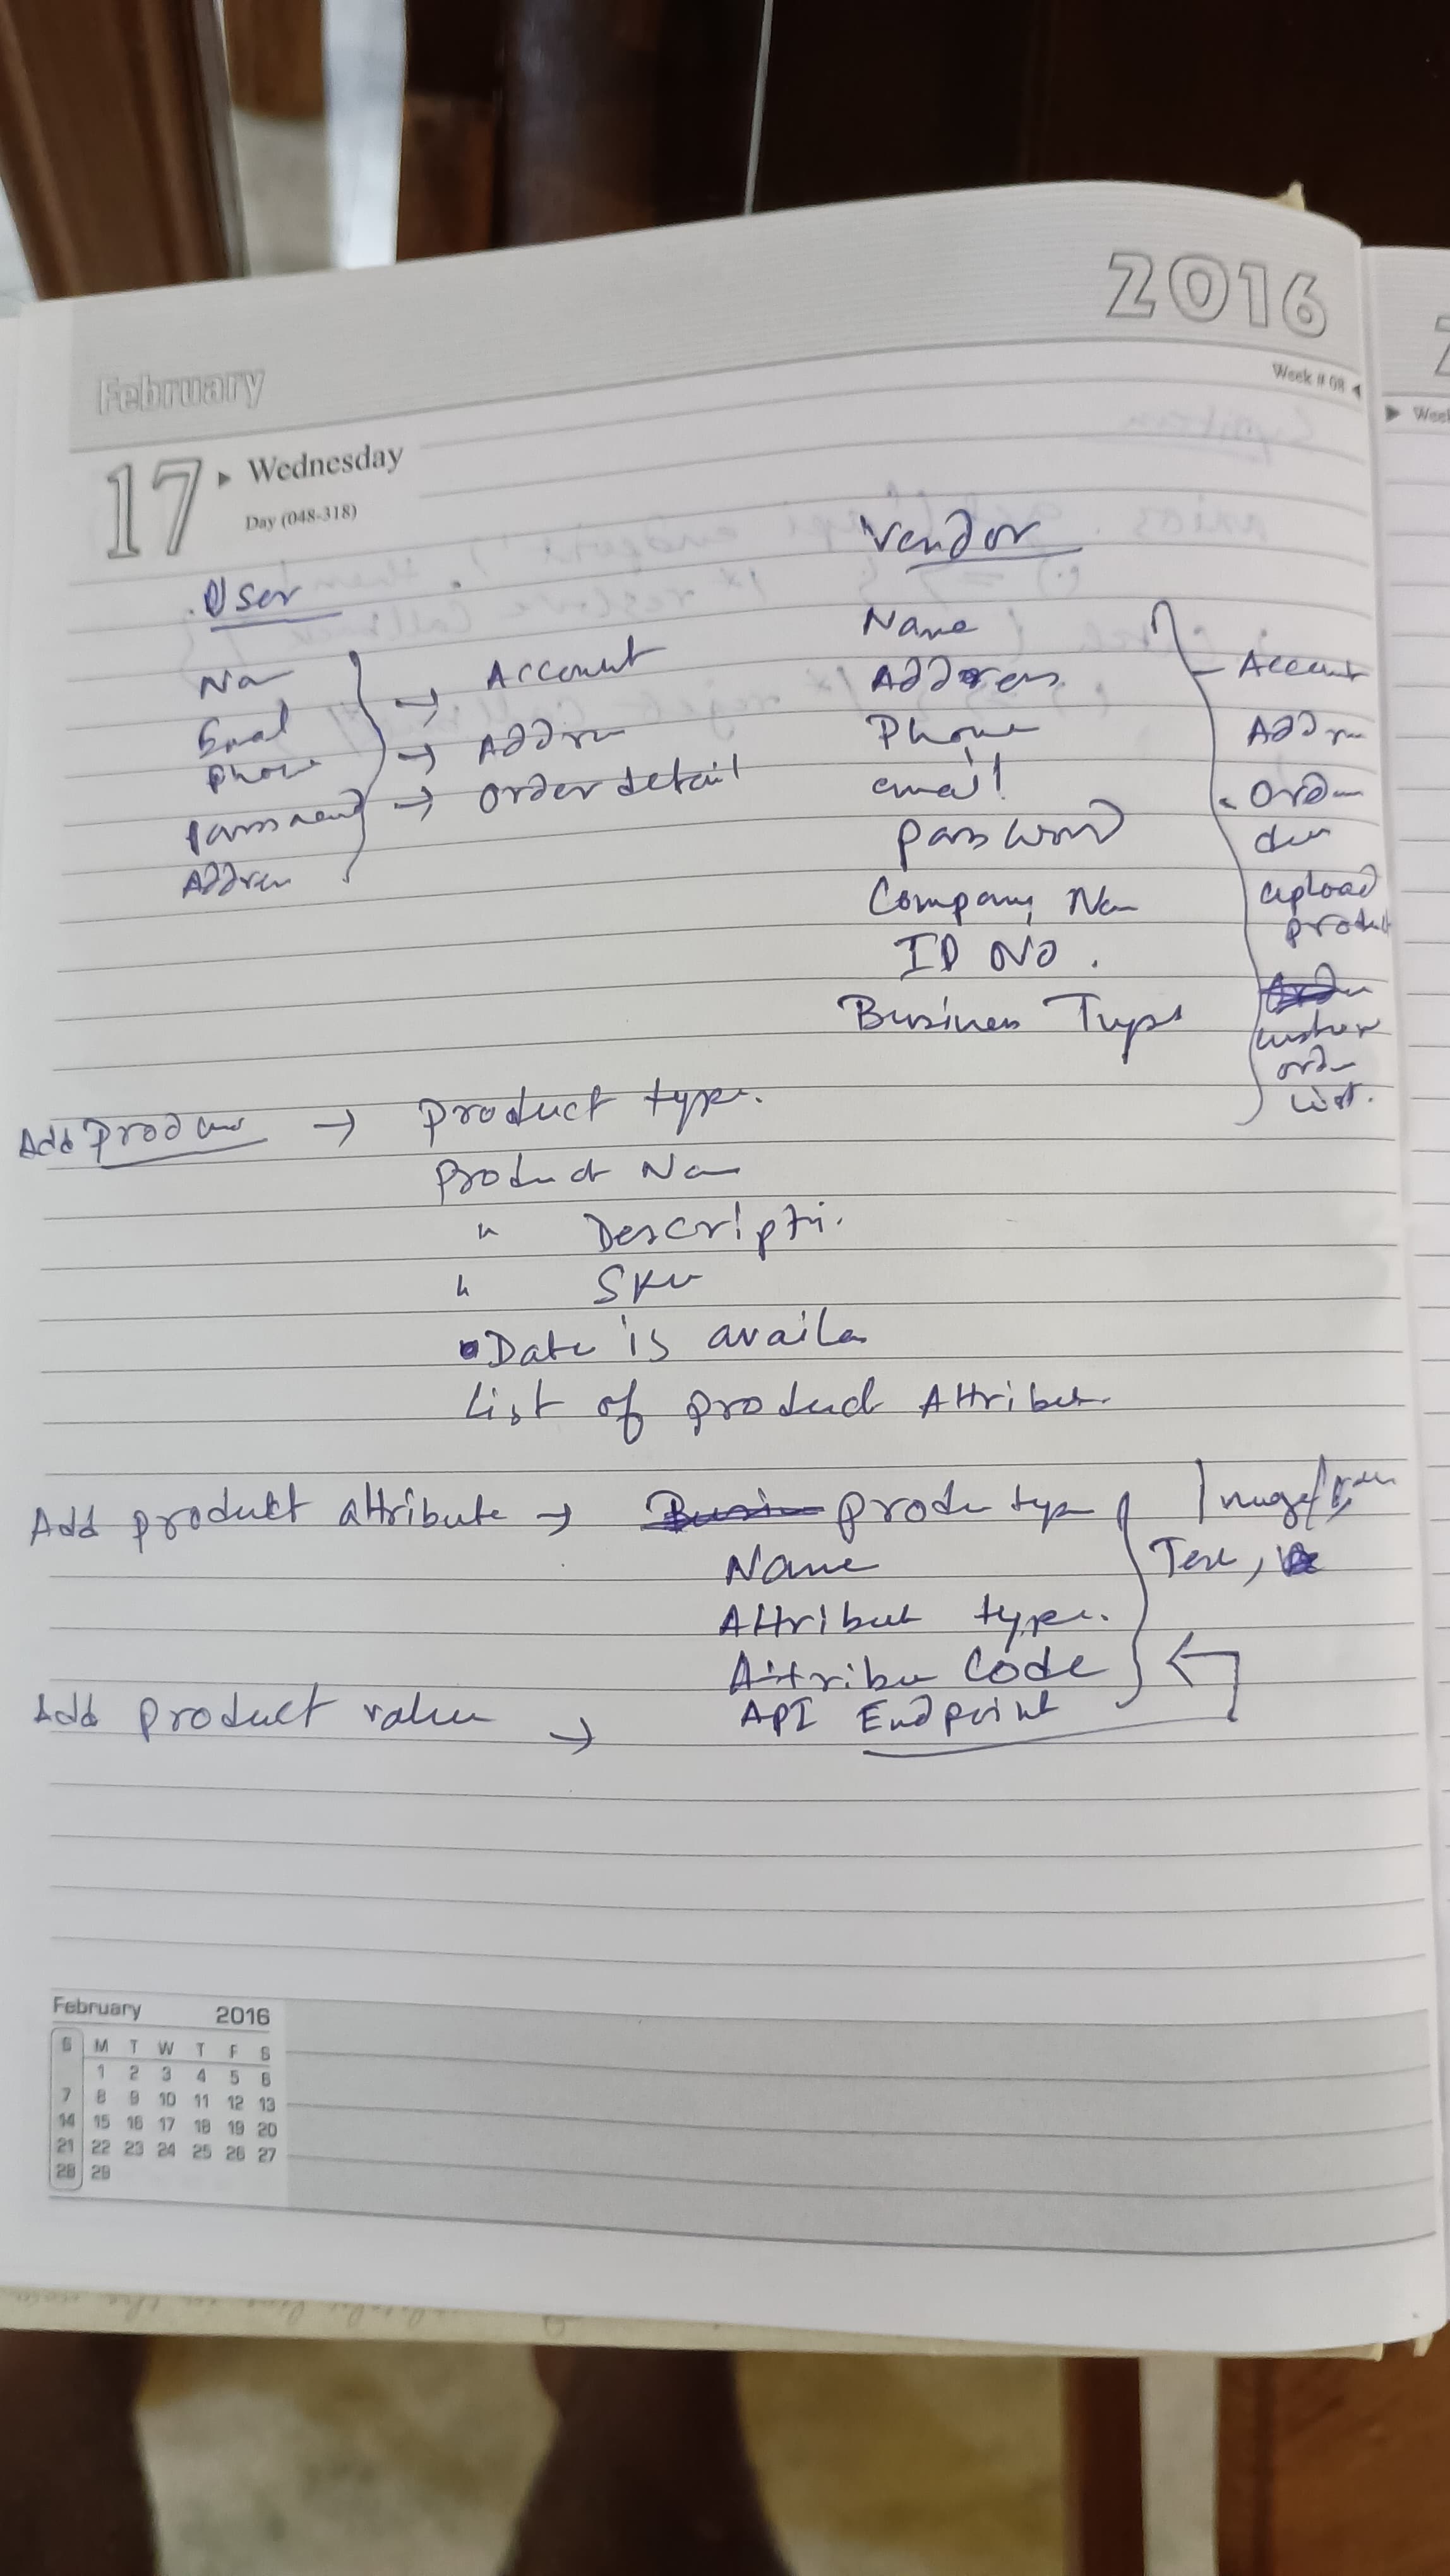 2016
February
Week # 08
17 Wednesday
Day (048-318)
User
Na
Email
Phone
Password
Address
→ Account
→ Addre
→ Order detail
Vendor
Name
Address
Phone
email
password
Company Na
ID NO.
Business Type
Account
Addre
Orde
upload
product
order
list.
Add Produc → Product type.
Product Na
" Descripti.
" SKU
Date is availa
List of product Attribut.
Add product attribute → produ type
Name
Attribut type.
Attribu Code
API Endpoint
Image/
Text,
Add product value →
February 2016
S M T W T F S
1 2 3 4 5 6
7 8 9 10 11 12 13
14 15 16 17 18 19 20
21 22 23 24 25 26 27
28 29